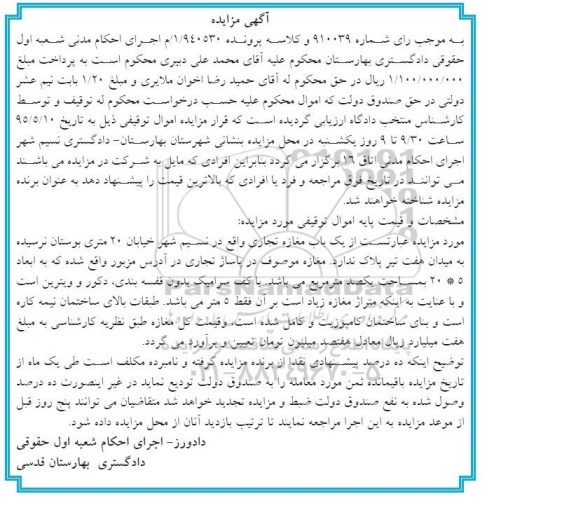 آگهی مزایده
به موجب رای شماره ۹۱۰۰۳۹ و کلاسه پرونده ۱/۹۴۰۵۳۰/م اجرای احکام مدنی شعبه اول
حقوقی دادگستری بهارستان محکوم علیه آقای محمد علی دبیری محکوم است به پرداخت مبلغ
۱/۱۰۰/۰۰۰/۰۰۰ ریال در حق محکوم له آقای حمید رضا اخوان ملایری و مبلغ ۱/۲۰ بابت نیم عشر
دولتی در حق صندوق دولت که اموال محکوم علیه حسب درخواست محکوم له توقیف و توسط
کارشناس منتخب دادگاه ارزیابی گردیده است که قرار مزایده اموال توقیفی ذیل به تاریخ ۹۵/۵/۱۰
ساعت ۹/۳۰ تا ۹ روز یکشنبه در محل مزایده بنشانی شهرستان بهارستان- دادگستری نسیم شهر
اجرای احکام مدنی اتاق ۱۶ برگزار می گردد بنابراین افرادی که مایل به شرکت در مزایده می باشند
می توانند در تاریخ فوق مراجعه و فرد یا افرادی که بالاترین قیمت را پیشنهاد دهد به عنوان برنده
مزایده شناخته خواهند شد.
مشخصات و قیمت پایه اموال توقیفی مورد مزایده:
مورد مزایده عبارتست از یک باب مغازه تجاری واقع در نسیم شهر خیابان ۲۰ متری بوستان نرسیده
به میدان هفت تیر پلاک ندارد. مغازه موصوف در پاساژ تجاری در آدرس مزبور واقع شده که به ابعاد
۵ * ۲۰ بمساحت یکصد مترمربع می باشد. با کف سرامیک بدون قفسه بندی، دکور و ویترین است
و با عنایت به اینکه متراژ مغازه زیاد است بر آن فقط ۵ متر می باشد. طبقات بالای ساختمان نیمه کاره
است و بنای ساختمان کامپوزیت و کامل شده است. وقیمت کل مغازه طبق نظریه کارشناسی به مبلغ
هفت میلیارد ریال معادل هفتصد میلیون تومان تعیین و برآورد می گردد.
توضیح اینکه ده درصد پیشنهادی نقدا از برنده مزایده گرفته و نامبرده مکلف است طی یک ماه از
تاریخ مزایده باقیمانده ثمن مورد معامله را به صندوق دولت تودیع نماید در غیر اینصورت ده درصد
وصول شده به نفع صندوق دولت ضبط و مزایده تجدید خواهد شد متقاضیان می توانند پنج روز قبل
از موعد مزایده به این اجرا مراجعه نمایند تا ترتیب بازدید آنان از محل مزایده داده شود.
دادورز- اجرای احکام شعبه اول حقوقی
دادگستری بهارستان قدسی
ParsNamadData
۰۲۱-۸۸۳۴۹۶۷۰-۵